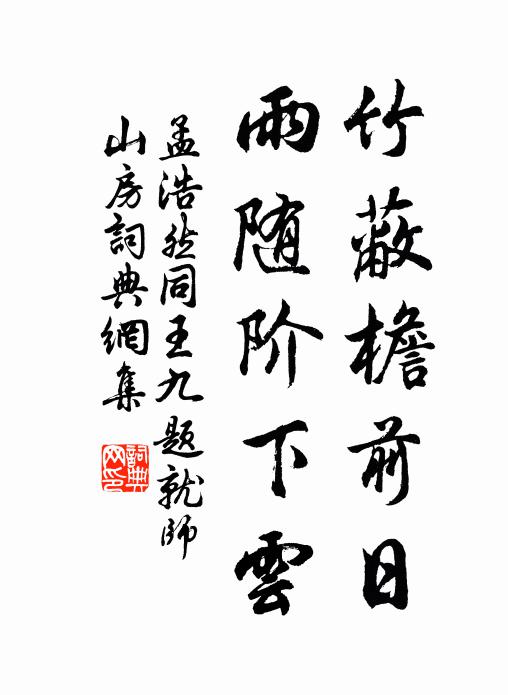 竹蔽檐前日
雨随阶下雲
孟浩然同王九题就师
山房詞典網集
詞典
网印